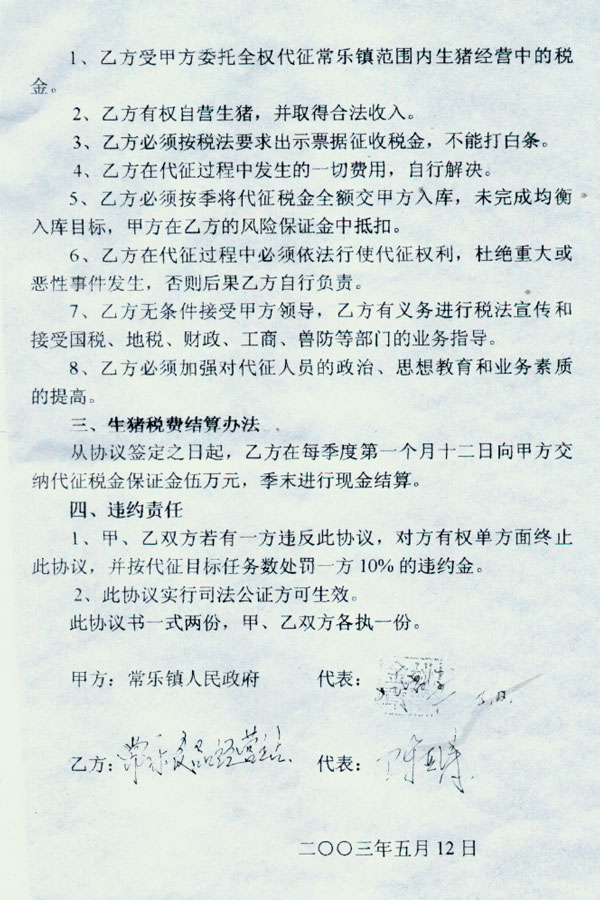 1、乙方受甲方委托全权代征常乐镇范围内生猪经营中的税
金。
2、乙方有权自营生猪，并取得合法收入。
3、乙方必须按税法要求出示票据征收税金，不能打白条。
4、乙方在代征过程中发生的一切费用，自行解决。
5、乙方必须按季将代征税金全额交甲方入库，未完成均衡
入库目标，甲方在乙方的风险保证金中抵扣。
6、乙方在代征过程中必须依法行使代征权利，杜绝重大或
恶性事件发生，否则后果乙方自行负责。
7、乙方无条件接受甲方领导，乙方有义务进行税法宣传和
接受国税、地税、财政、工商、兽防等部门的业务指导。
8、乙方必须加强对代征人员的政治、思想教育和业务素质
的提高。
三、生猪税费结算办法
从协议签定之日起，乙方在每季度第一个月十二日向甲方交
纳代征税金保证金伍万元，季末进行现金结算。
四、违约责任
1、甲、乙双方若有一方违反此协议，对方有权单方面终止
此协议，并按代征目标任务数处罚一方 10% 的违约金。
2、此协议实行司法公证方可生效。
此协议书一式两份，甲、乙双方各执一份。
甲方：常乐镇人民政府 代表：
乙方：常乐食品经营站 代表：
二〇〇三年五月 12 日